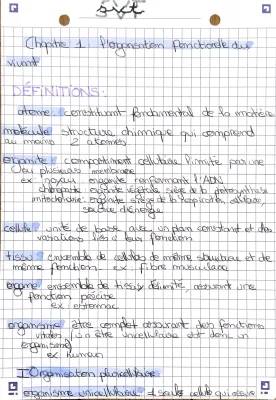 SVT
Chapitre 1 l'organisation fonctionelle du
vivant
DÉFINITIONS:
atome: constituant fondamental de la matière
molécule structure chimique qui comprend
au moins 2 atomes
organite: compartiment cellulaire limité par une
ou plusieurs membrane
ex noyau organite renfermant l'ADN
chloroplaste organite végétale siège de la photosynthèse
mitochondrie: organite siège de la respiration cellulaire,
source d'énergie
cellule: unité de base avec un plan constant et des
variations liés à leur fonction
tissu: ensemble de cellules de même structure et de
même fonction ex. fibre musculaire
organe ensemble de tissus délimité, assurant une
fonction précise
ex estomac
organisme être complet assurant des fonctions
vitales, un être unicellulaire est donc un
organisme
ex humain
I Organisation pluricellulaire
organisme unicellulaire 1 seule cellule qui assure